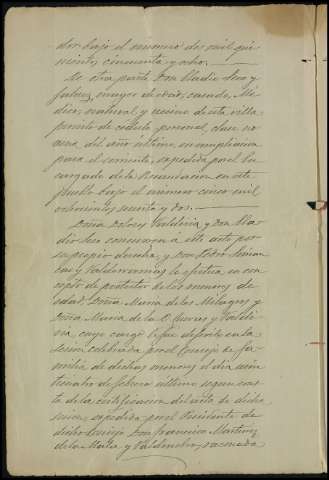 dor bajo el numero dos mil qui-
nientos cincuenta y ocho.
De otra parte Don Eladio Seco y
mayor de edad, casado, Mé-
dico, natural y vecino de esta villa
provisto de cedula personal, clase no-
vena del año ultimo, en ampliacion
para el corriente, expedida por el En-
cargado de la Recaudacion en este
pueblo bajo el numero cinco mil
ochocientos y dos.
Doña Dolores Valdivia y Don Ela-
dio Seco concurren a este acto por
su propio derecho, y Don Pedro
y lo efectua en con-
cepto de protector de los menores de
edad, Doña Maria de los Milagros y
Doña Maria de la y Valdi-
via, cuyo cargo le fue deferido en la
sesion celebrada por el Consejo de fa-
milia de dichos menores el dia vein-
te de febrero ultimo segun cons-
ta de la certificacion del acta de dicha
sesion, expedida por el Presidente de
dicho Consejo Don Francisco Martinez
de la Mata y